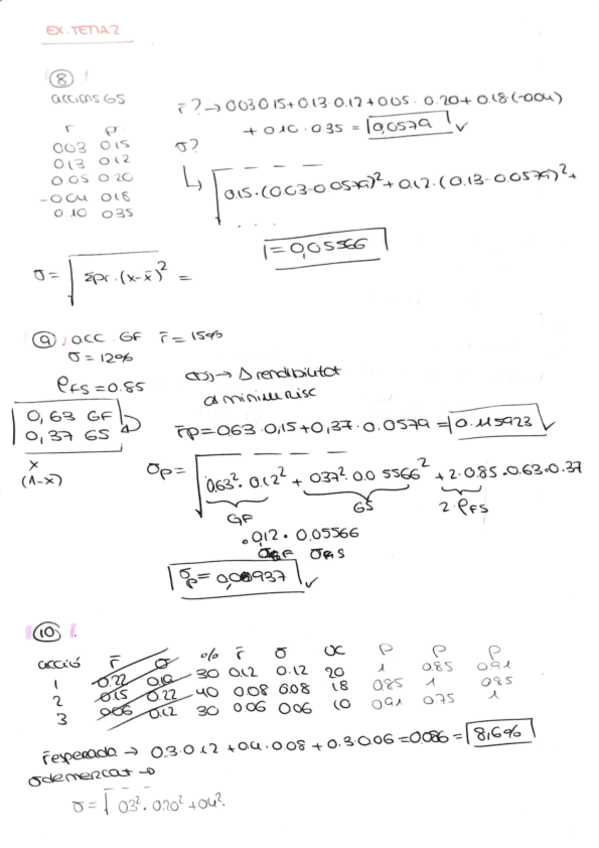 EX. TEMA 2
8
accions GS
r̄? → 0'03·0'15+0'13·0'12+0'05·0'20+0'18(-0'04)
+0'10·0'35 = 0,0579 ✓
r p
0'03 0'15
0'13 0'12
0'05 0'20
-0'04 0'18
0'10 0'35
σ?
↳ √0'15·(0'03-0'0579)²+0'12·(0'13-0'0579)²+
...
= 0,05566
σ = √Σpr·(x-x̄)² =
9 acc. GF r̄ = 15%
σ = 12%
ρFS = 0.85
obj → Δ rendibilitat
a mínim risc
0,63 GF
0,37 GS
x
(1-x)
r̄p = 0'63·0,15+0,37·0.0579 = 0.115923 ✓
σp = √0'63²·0.12² + 0'37²·0.05566² + 2·0.85·0.63·0.37
GF GS 2·ρFS
·0,12·0.05566
σGF σGS
σp = 0,08937 ✓
10
acció r̄ σ % r̄ σ ρ ρ ρ
1 0.22 30 0.12 0.12 20 1 0.85 0.91
2 0.15 0.22 40 0.08 0.08 18 0.85 1 0.85
3 0.06 0.12 30 0.06 0.06 10 0.91 0.75 1
r̄ esperada → 0.3·0.12+0.4·0.08+0.3·0.06=0.086= 8,6%
σ de mercat →
σ = √0'3²·0.20²+0'4²·